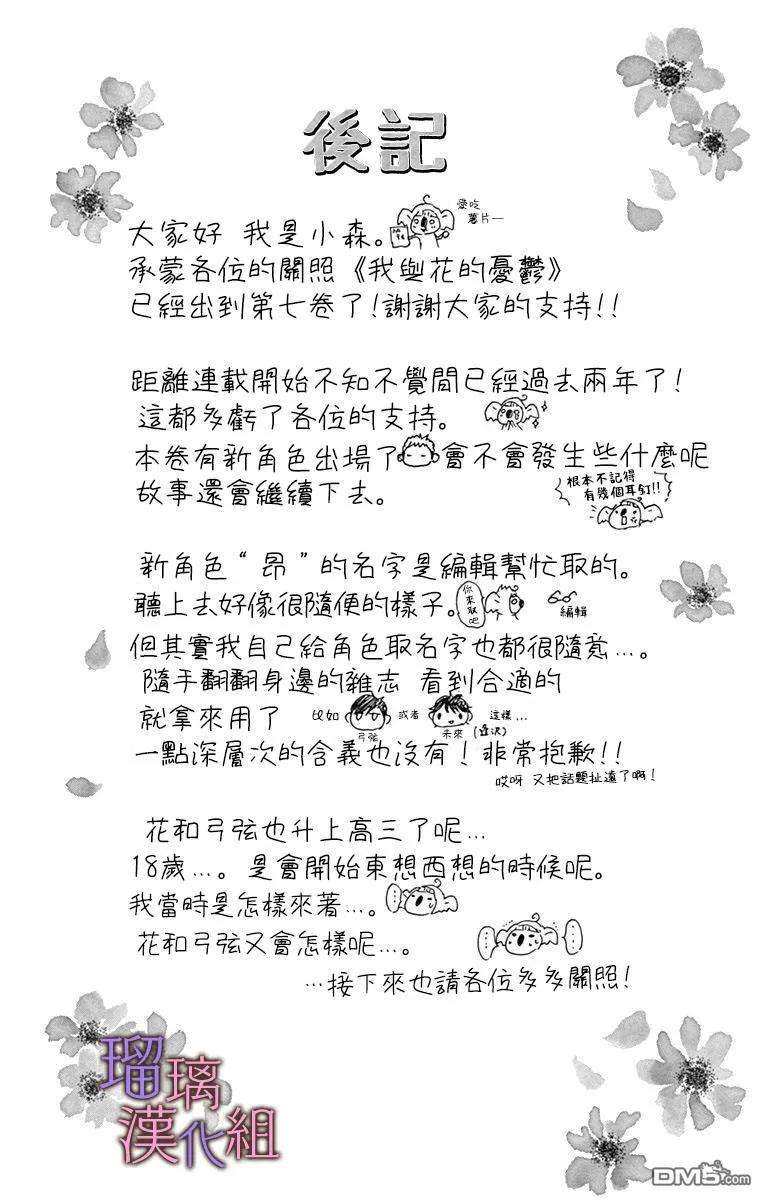 後記
大家好 我是小森。
愛吃
薯片一
承蒙各位的關照《我與花的憂鬱》
已經出到第七卷了!謝謝大家的支持!!
距離連載開始不知不覺間已經過去兩年了!
這都多虧了各位的支持。
本卷有新角色出場了 會不會發生些什麼呢
故事還會繼續下去。
根本不記得
有幾個耳釘!!
新角色“昂”的名字是編輯幫忙取的。
聽上去好像很隨便的樣子。
你來取吧
編輯
但其實我自己給角色取名字也都很隨意…。
隨手翻翻身邊的雜志 看到合適的
就拿來用了 比如 或者 這樣…
弓弦
未來(逢沢)
一點深層次的含義也沒有!非常抱歉!!
哎呀 又把話題扯遠了啊!
花和弓弦也升上高三了呢…
18歲…。是會開始東想西想的時候呢。
我當時是怎樣來著…。
花和弓弦又會怎樣呢…。
…接下來也請各位多多關照!
瑠璃
漢化組
DM5.com